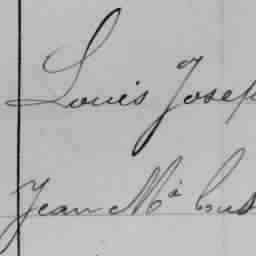 Louis Josep
Jean Mª